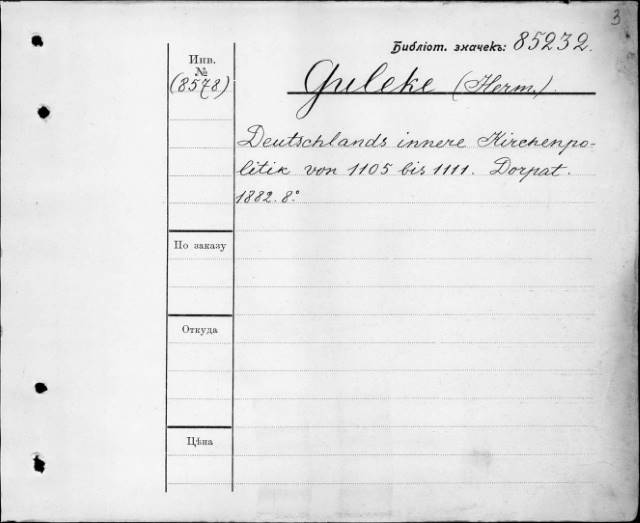 3
Библіот. значекъ: 85232.
Инв.
№
(8578)
Guleke (Herm.)
Deutschlands innere Kirchenpo-
litik von 1105 bis 1111. Dorpat.
1882. 8°
По заказу
Откуда
Цѣна